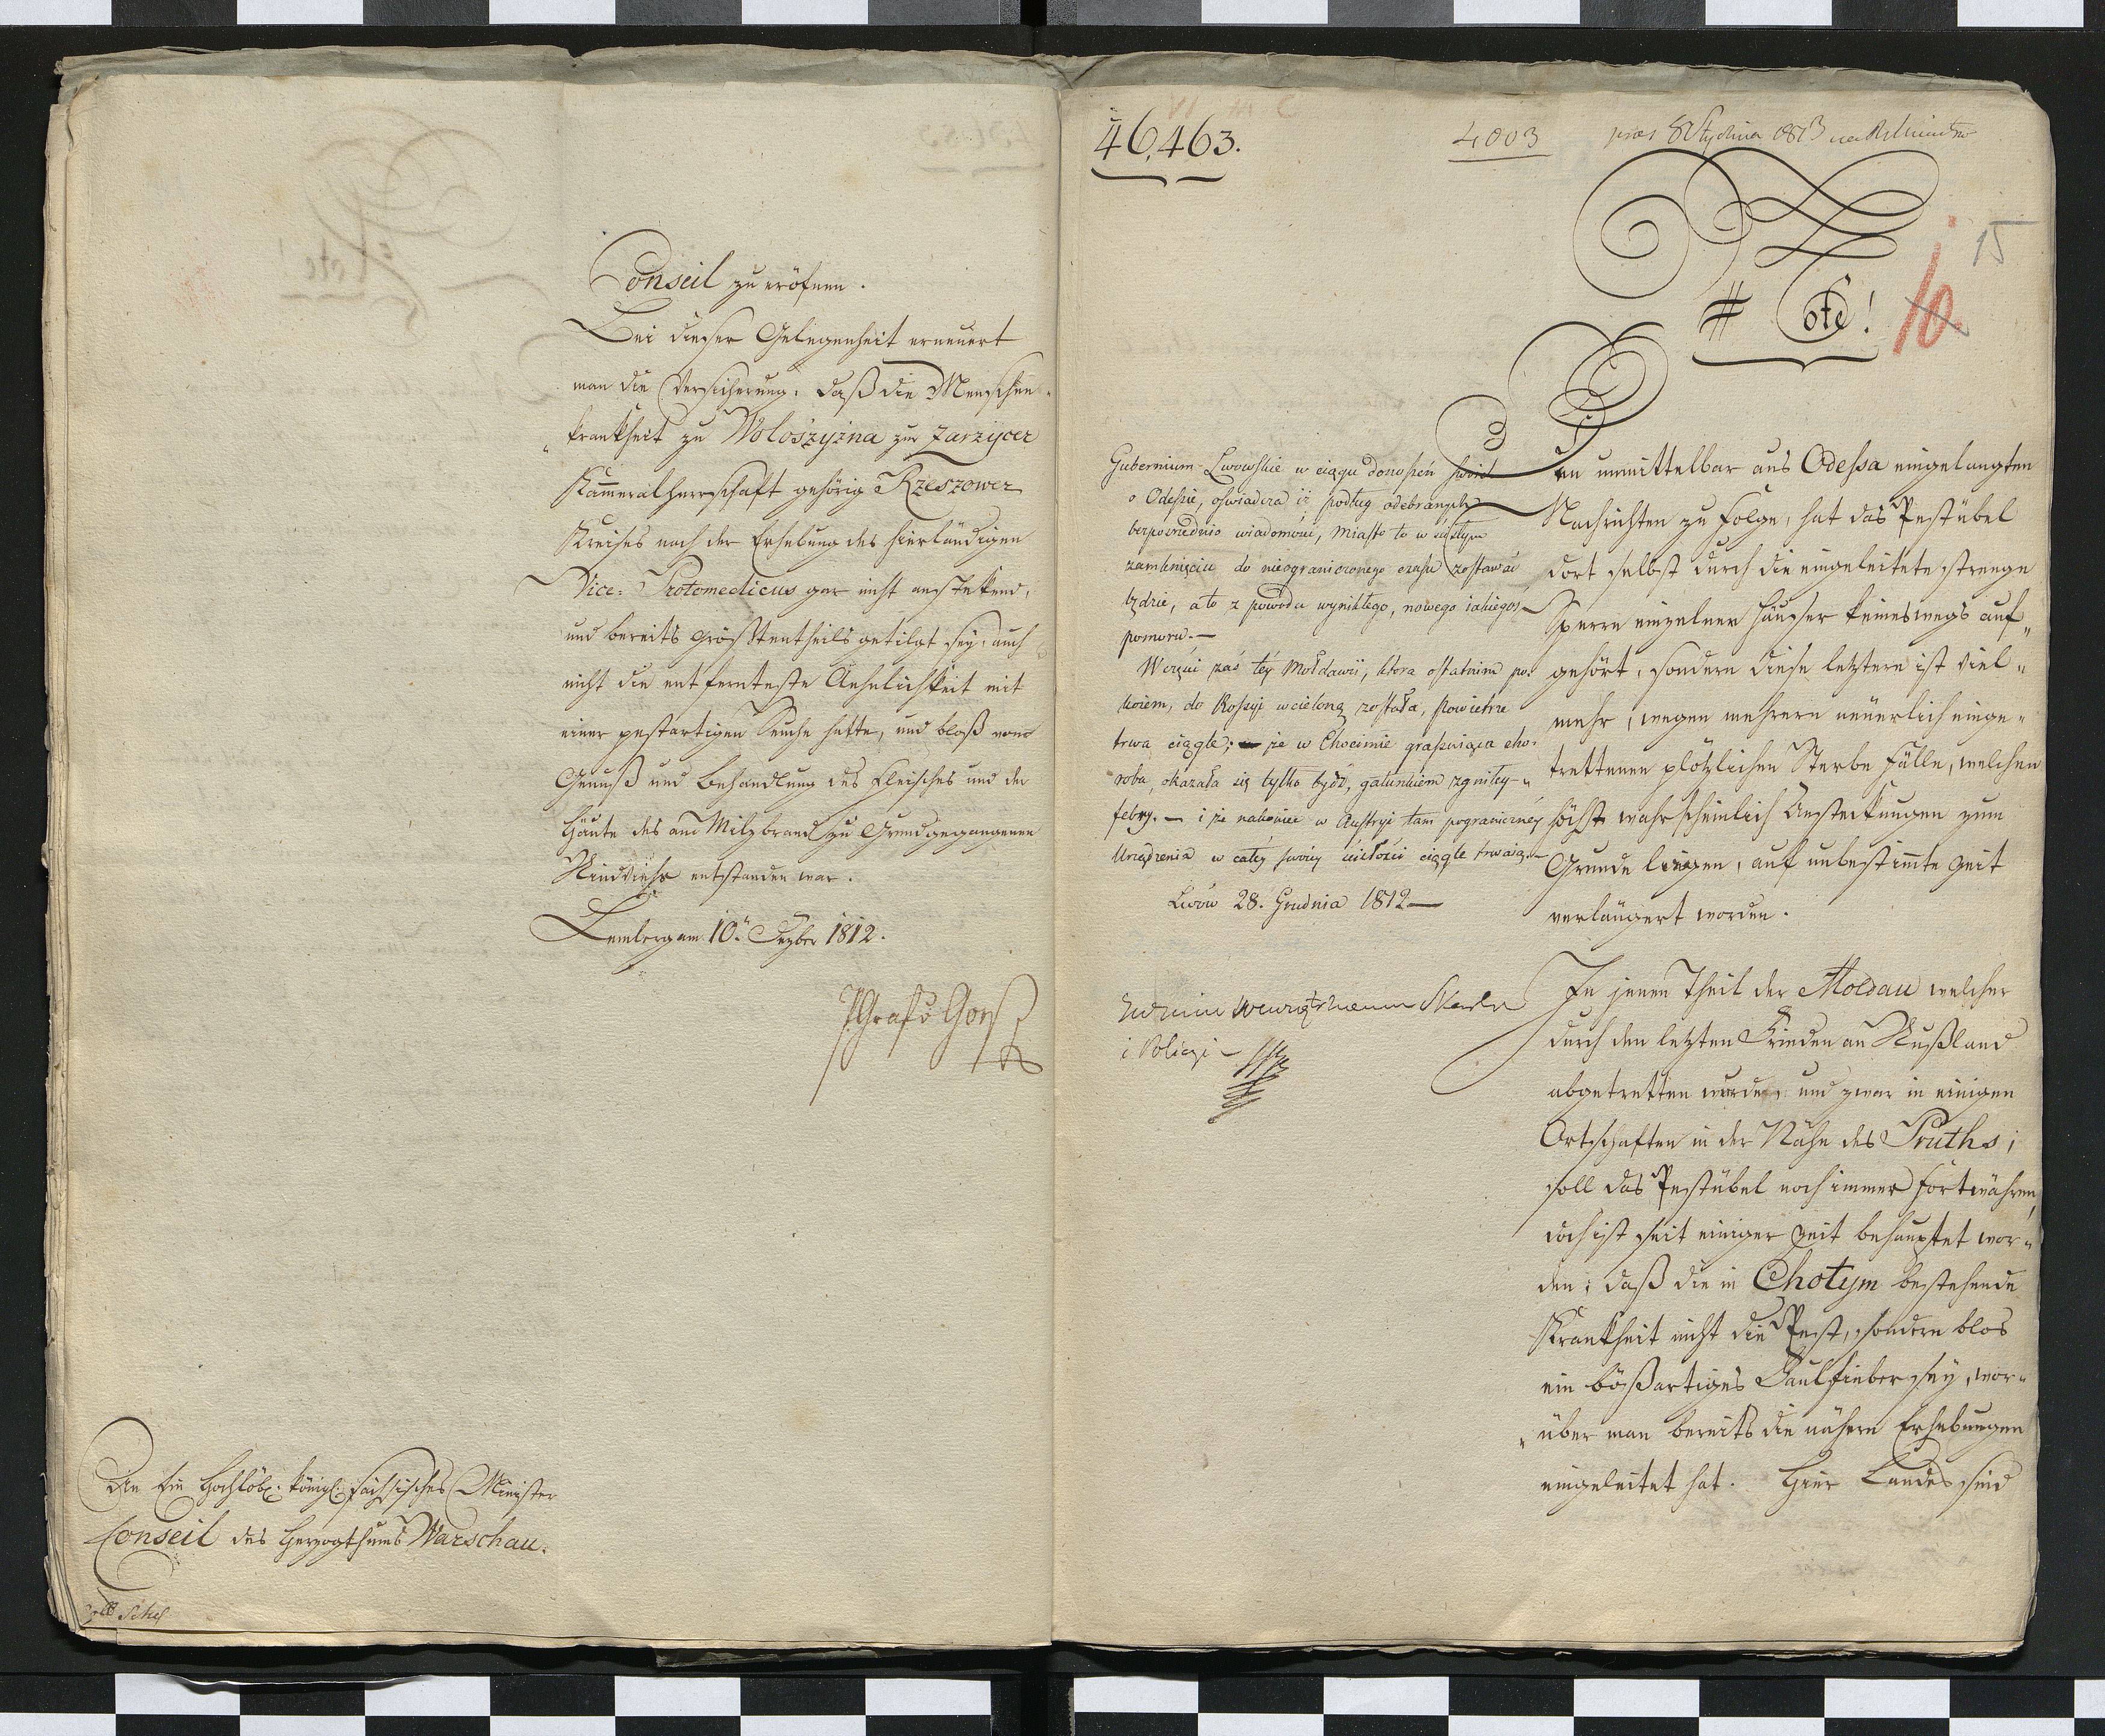 Conseil zu eröfnen.
Bei dieser Gelegenheit erneuert
man die Versicherung: daß die Menschen-
krankheit zu Woloszyzna zur Zarzycer
Kammeralherrschaft gehörig Rzeszower
Kreises nach der Erhebung des hierländigen
Vice-Protomedicus gar nicht anstekend,
und bereits größtentheils getilgt sey, auch
nicht die entfernteste Aehnlichkeit mit
einer pestartigen Seuche hatte, und bloß vom
Genuß und Behandlung des Fleisches und der
Häute des am Milzbrand zu Grund gegangenen
Rindviehs entstanden war.
Lemberg am 10ten Dezber 1812.
An Ein Hochlöbl. königl. sächsisches Minister
Conseil des Herzogthums Warschau.
46,463.
4003
pras 8 Stycznia 1813
15
10.
Note!
Gubernium Lwowskie w ciągu doniesień swoich
o Odessie, oświadcza iż podług odebranych
bezpośrednio wiadomości, Miasto to w ścisłym
zamknięciu do nieograniczonego czasu zostawać
będzie, a to z powodu wynikłego, nowego iakiegoś
pomoru. —
W części zaś téy Mołdawii, ktora ostatnim po-
koiem, do Rossyi wcieloną została, powietrze
trwa ciągle; że w Chocimie grassuiąca cho-
roba, okazała się tylko bydź, gatunkiem zgniłey
febry. — i że nakoniec w Austryi tam pograniczney
Urządzenia w całey swoiey ścisłości ciągle trwaią. —
Lwów 28. Grudnia 1812 —
i Policyi —
Den unmittelbar aus Odessa eingelangten
Nachrichten zu Folge, hat das Pestübel
dort selbst durch die eingeleitete strenge
Sperre einzelner Häuser keineswegs auf-
gehört, sondern diese letztere ist viel-
mehr, wegen mehrern neuerlich einge-
trettenen plötzlichen Sterbe Fälle, welchen
höchst wahrscheinlich Ansteckungen zum
Grunde liegen, auf unbestimmte Zeit
verlängert worden.
In jenem Theil der Moldau welcher
durch den letzten Frieden an Rußland
abgetretten wurde, und zwar in einigen
Ortschaften in der Nähe des Pruths;
soll das Pestübel noch immer fortwähren,
doch ist seit einiger Zeit behauptet wor-
den; daß die in Chotym bestehende
Krankheit nicht die Pest, sondern blos
ein bößartiges Faulfieber sey, wor-
über man bereits die nähern Erhebungen
eingeleitet hat. Hier Landes sind